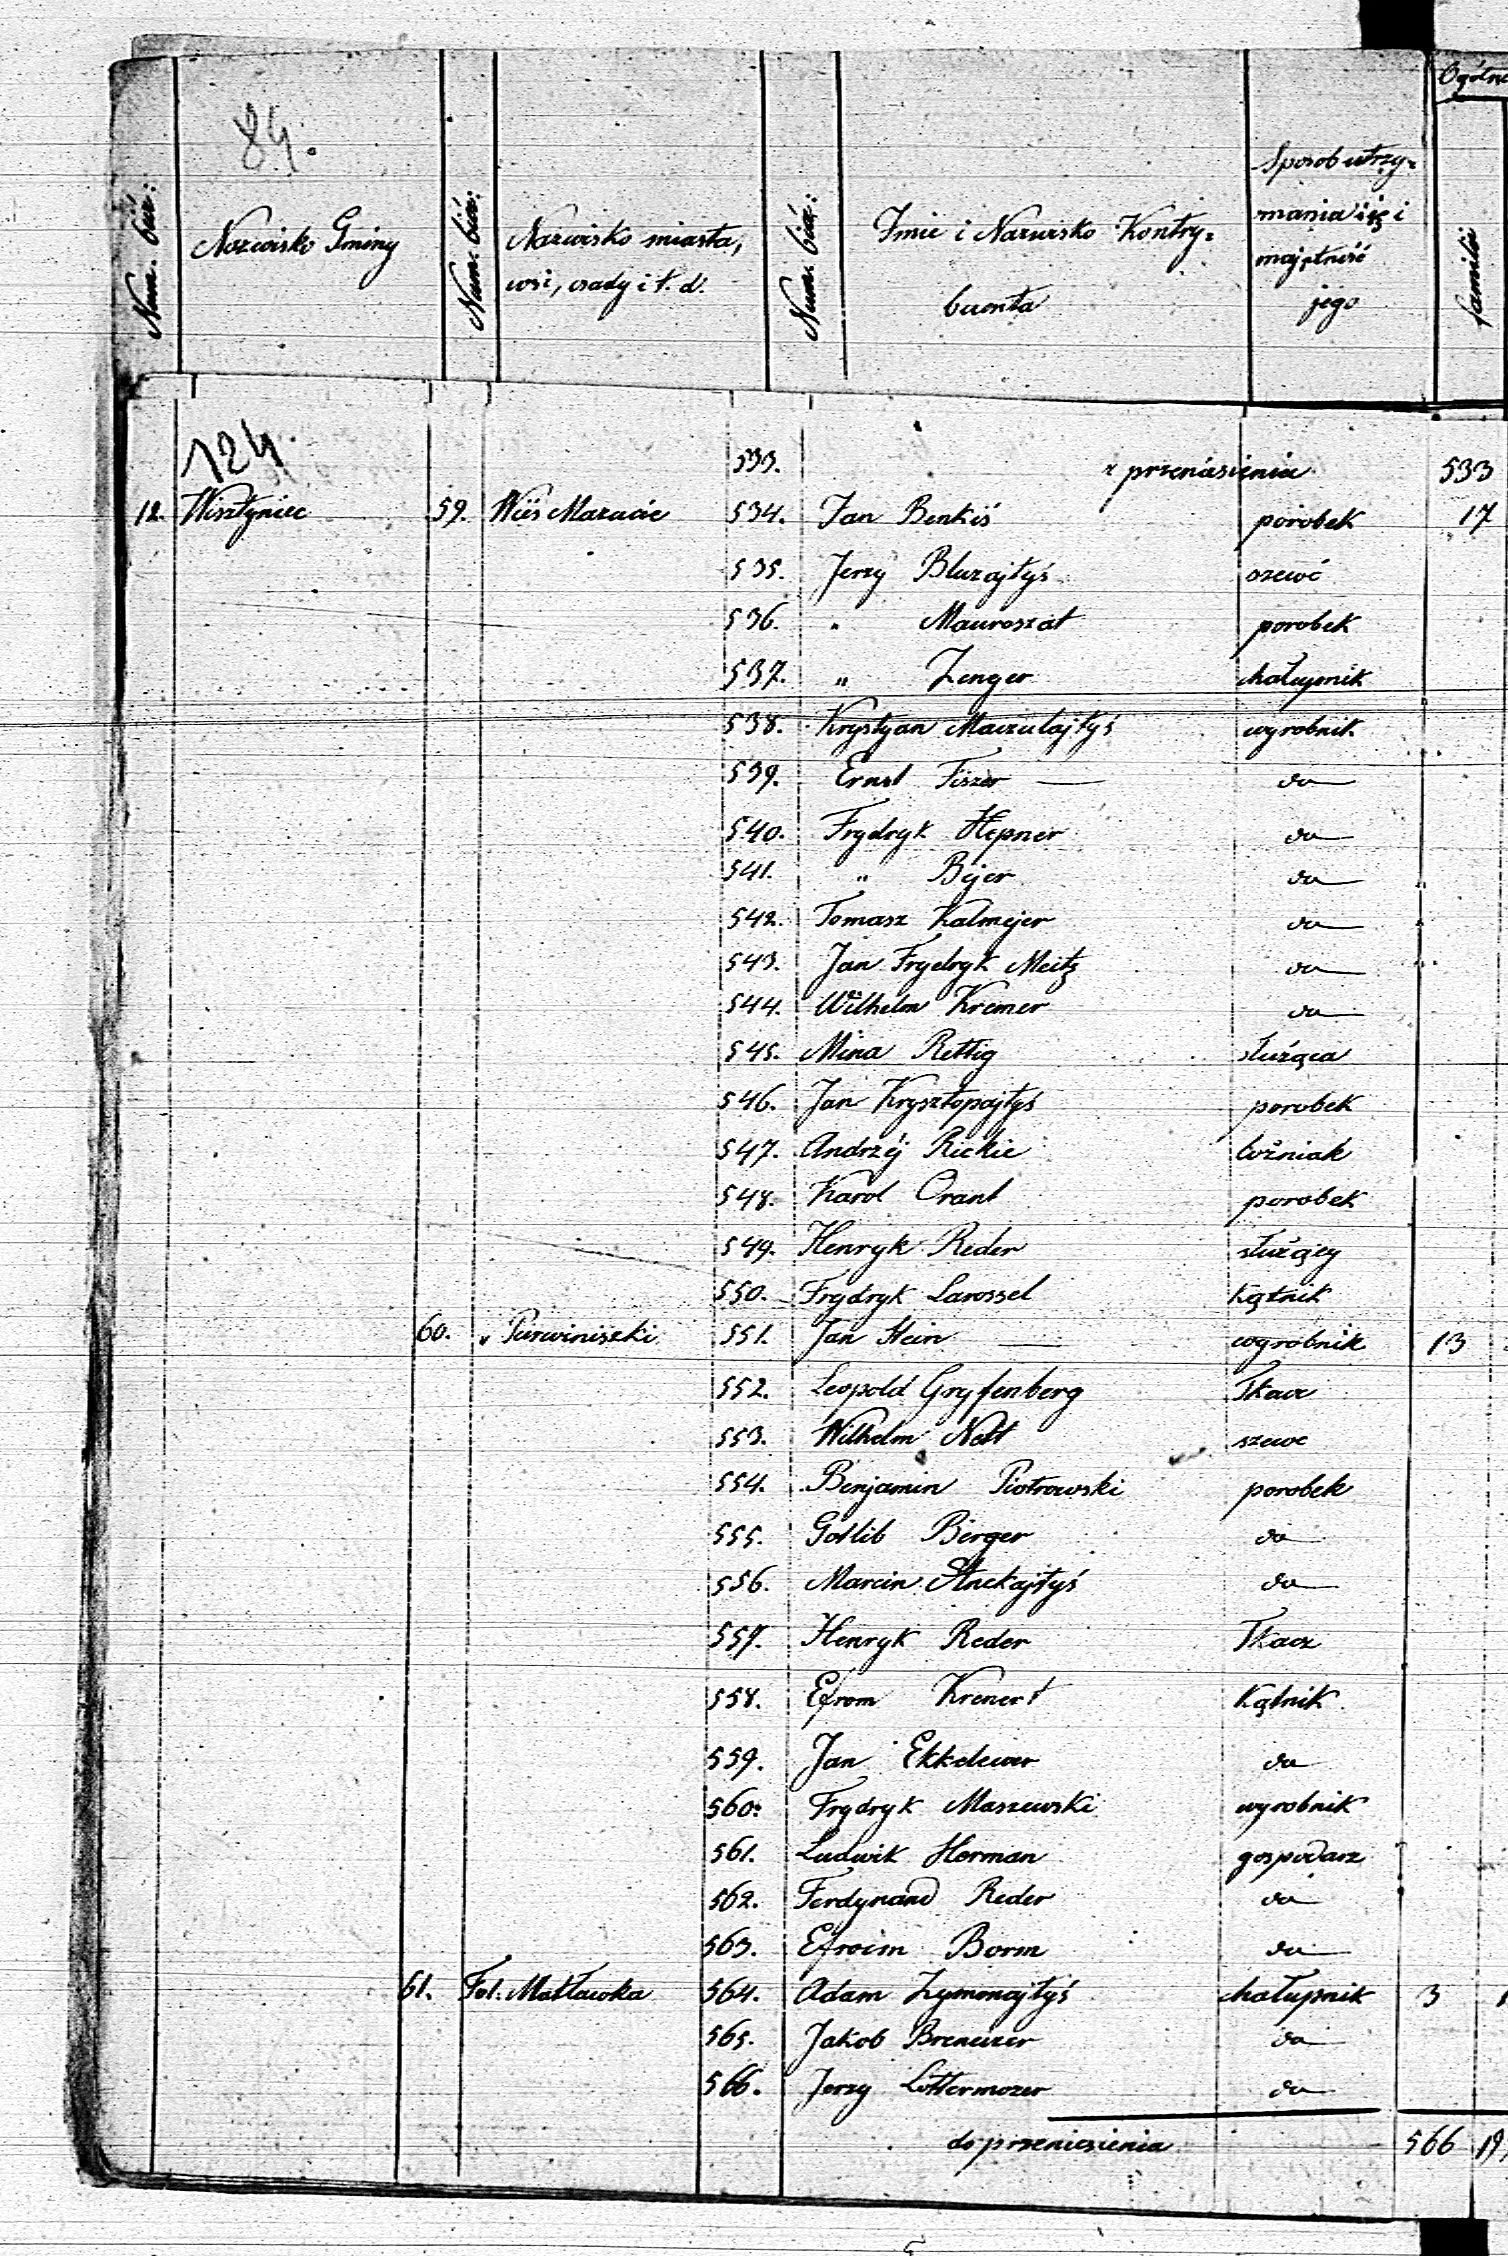 84.
Ogólna
Num. bież: Nazwisko Gminy Num: bież: Nazwisko miasta, wsi, osady i t. d. Num. bież: Imie i Nazwisko Kontrybuenta Sposob utrzymania się i majętność jego familii
124.
533. z przeniesienia 533
12. Wisztyniec 59. Wieś Mazucie 534. Jan Benkiś porobek 17
535. Jerzy Bluzajtyś szewć
536. " Mauroszat porobek
537. " Zenger chałupnik
538. Krystyan Maczulajtyś wyrobnik
539. Ernst Fiszer — do
540. Frydryk Hepner do
541. " Bejer do
542. Tomasz Kalmejer do
543. Jan Frydryk Meitz do
544. Wilhelm Kremer do
545. Mina Rettig służąca
546. Jan Krysztopajtyś porobek
547. Andrzéj Rickie woźniak
548. Karol Orant porobek
549. Henryk Reder służący
550. Frydryk Larossel kątnik
60. " Purwiniszki 551. Jan Stein — wyrobnik 13
552. Leopold Gryfenberg Tkacz
553. Wilhelm Nett szewc
554. Benjamin Piotrowski porobek
555. Gotlib Berger do
556. Marcin do
557. Henryk Reder Tkacz
558. Efrom Krenert Kątnik
559. Jan do
560. Frydryk Maszewski wyrobnik
561. Ludwik Herman gospodarz
562. Ferdynand Reder do
563. Efroim Borm do
61. Fol. Matławka 564. Adam Zymonajtyś chałupnik 3
565. Jakob do
566. Jerzy Lottermozer do
do przeniesienia 566